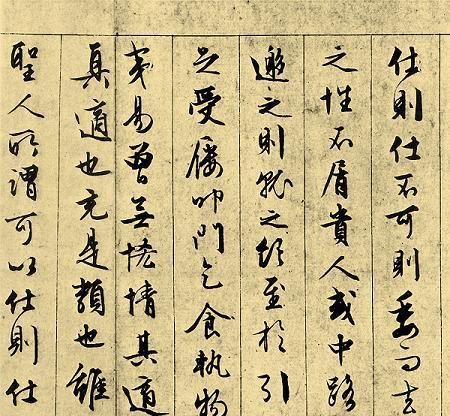 仕則仕不可則委而去
之性不屑貴人或中路
邀之則就之飲至於引
足受履叩門乞食執物
易曾無情其適
真適也充是類也雖
聖人所謂可以仕則仕